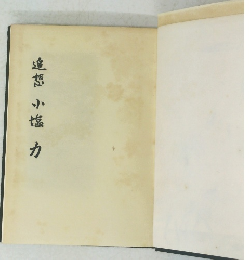 追想 小塩 力